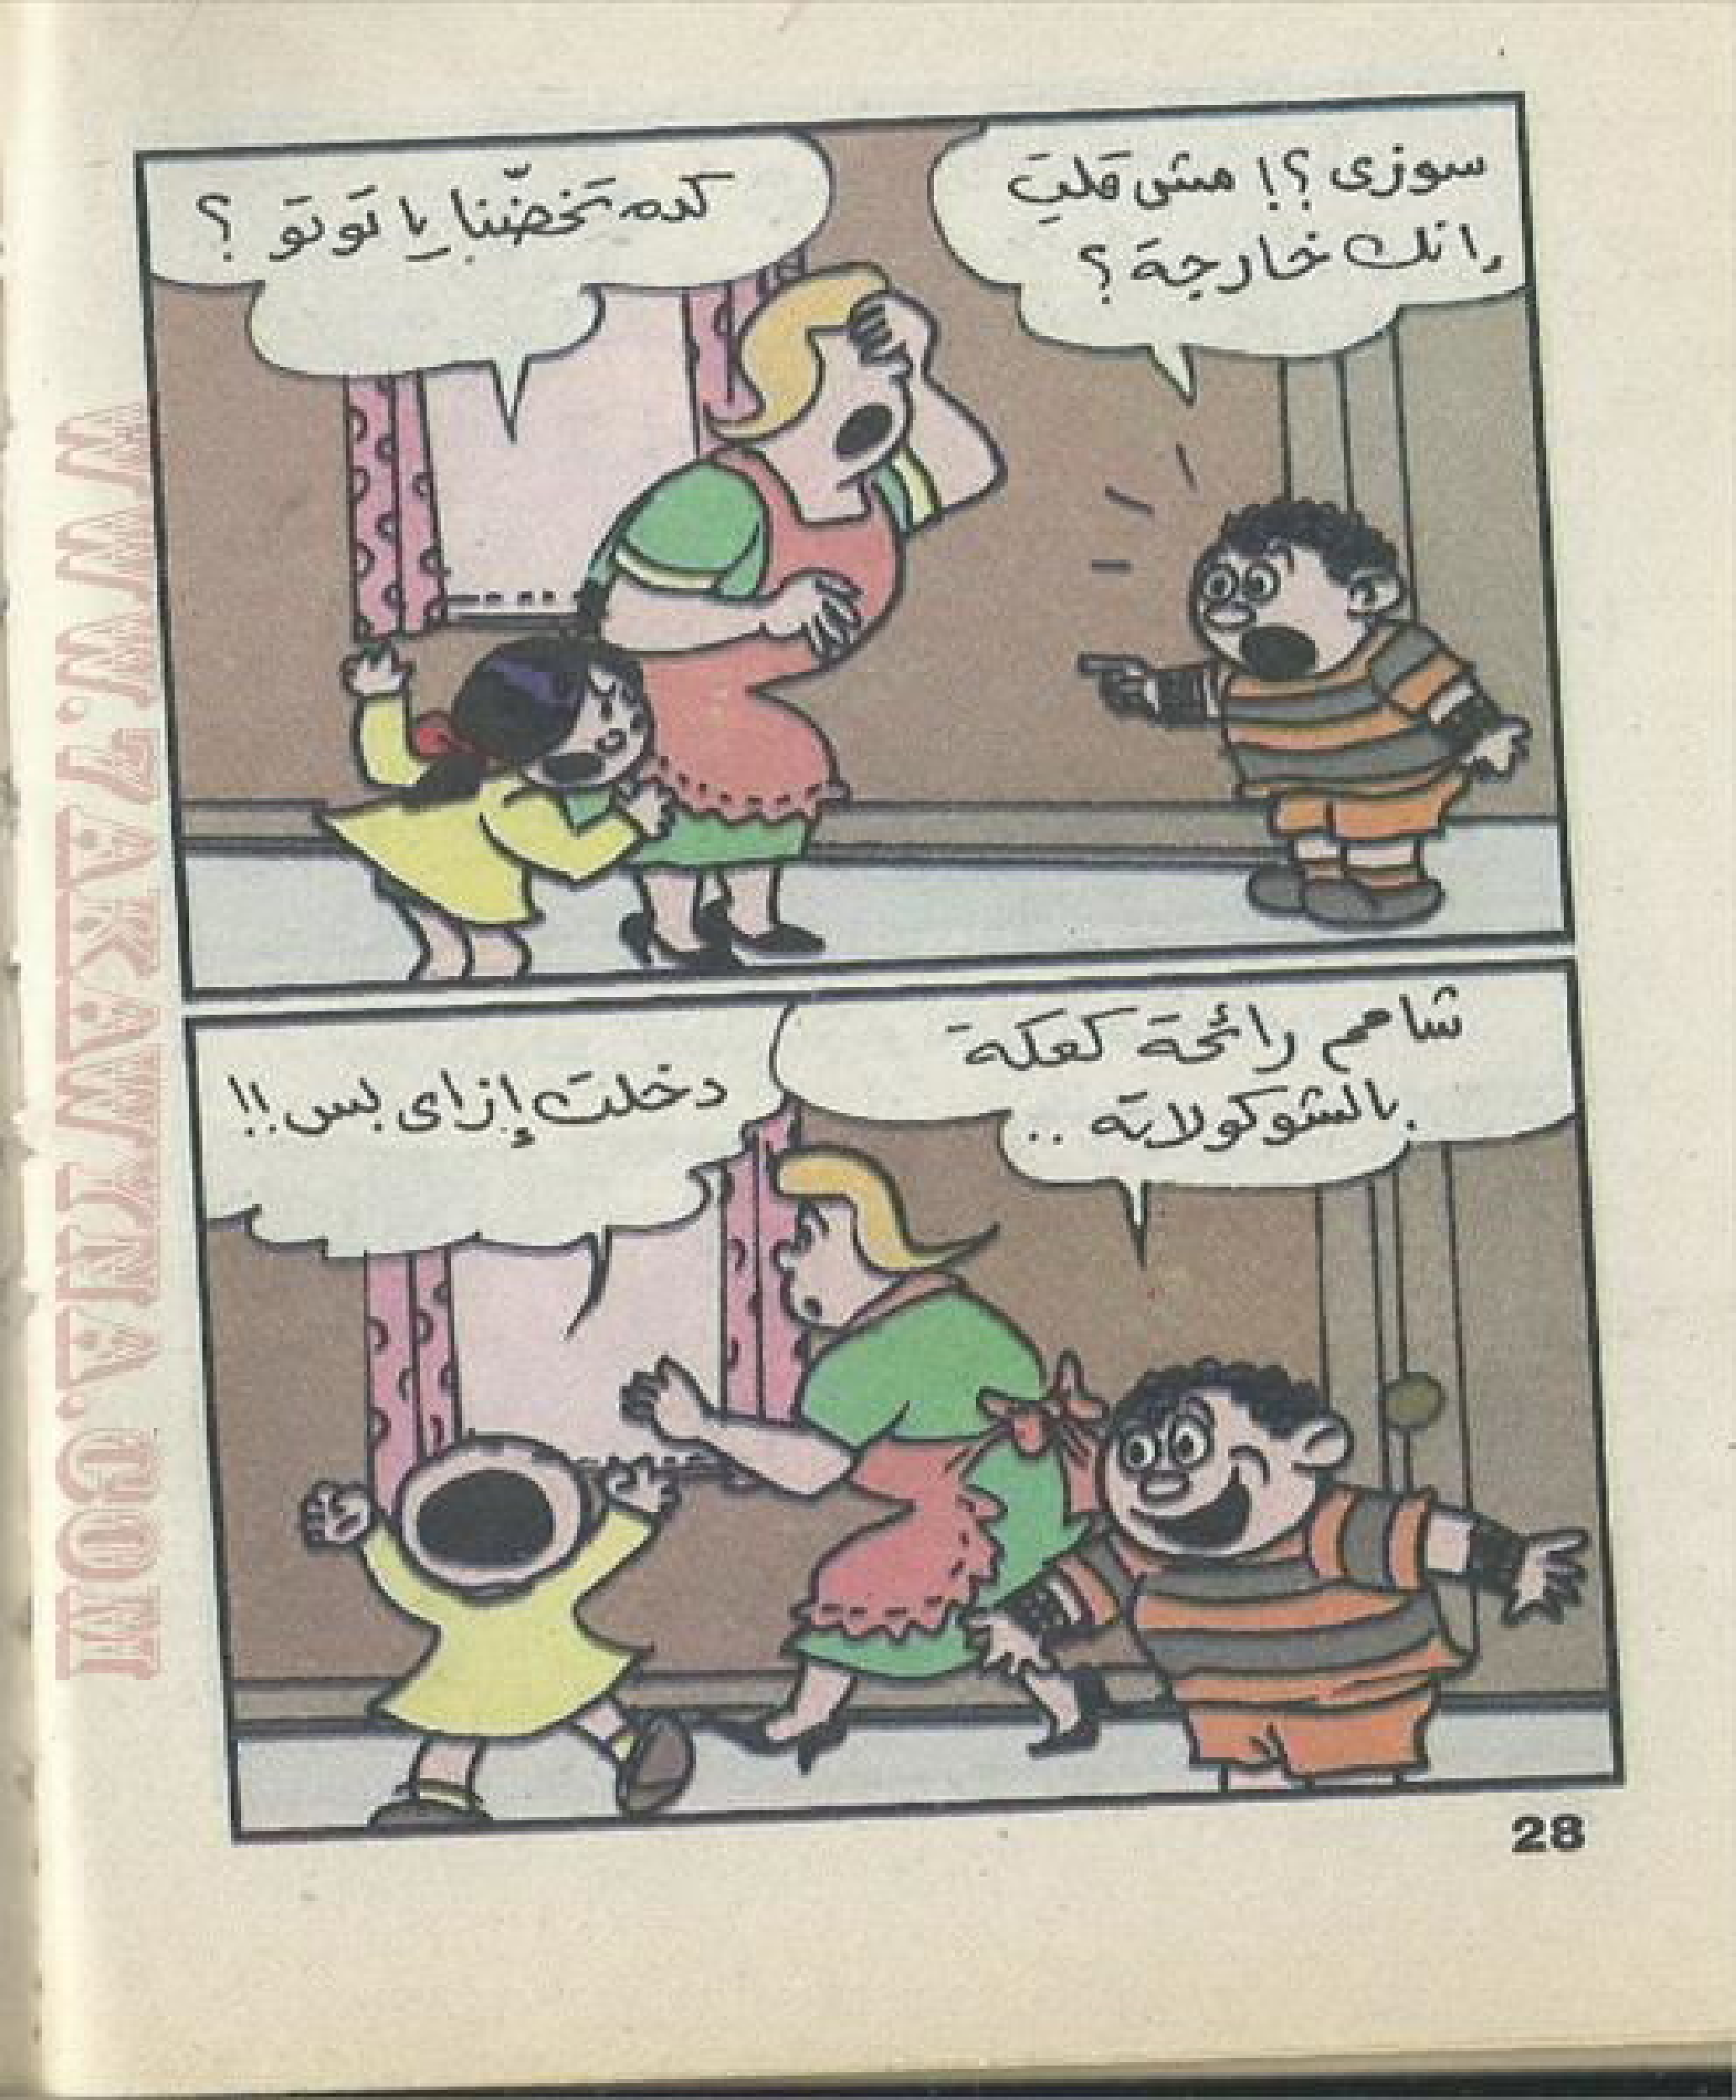 سوزى ؟! مش قلتِ
إنك خارجة ؟
كده تخضّنا يا توتو ؟
شامم رائحة كعكة
بالشوكولاتة ..
دخلت إزاى بس !!
28
WWW.7AKAWITNA.COM